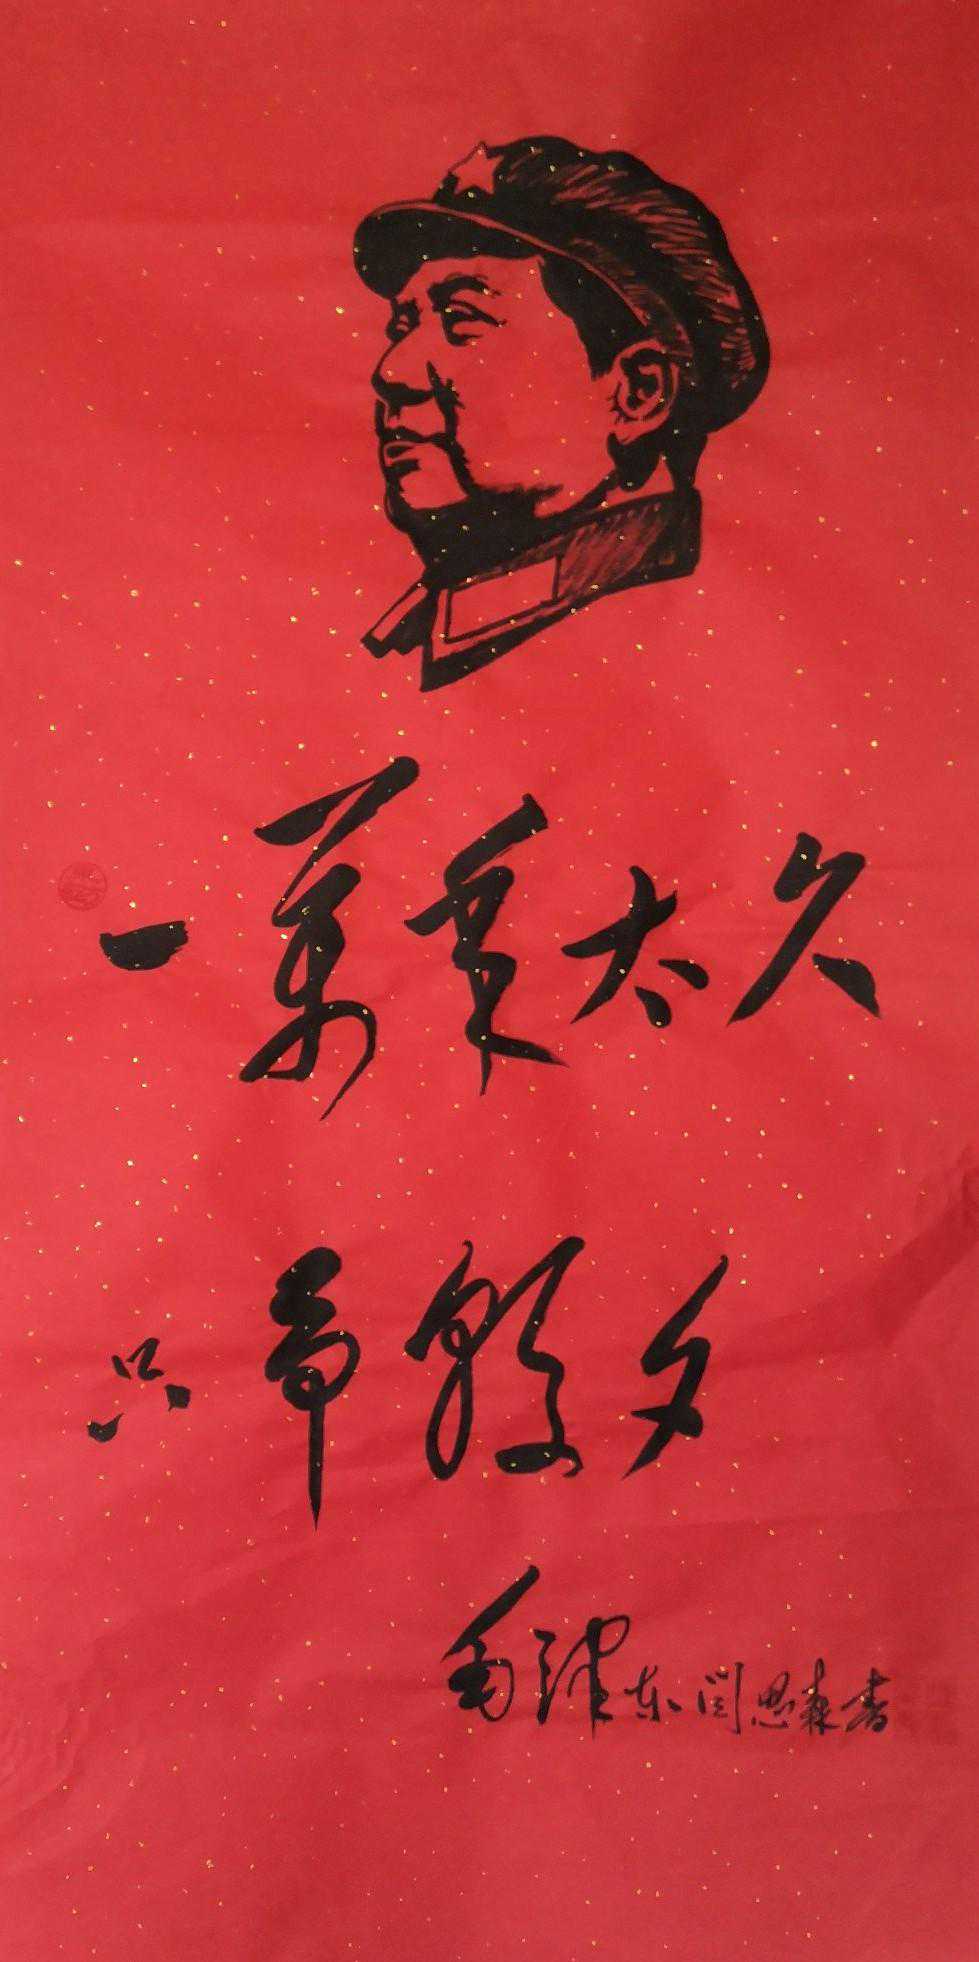 一萬年太久
只争朝夕
毛泽东 闫思森書